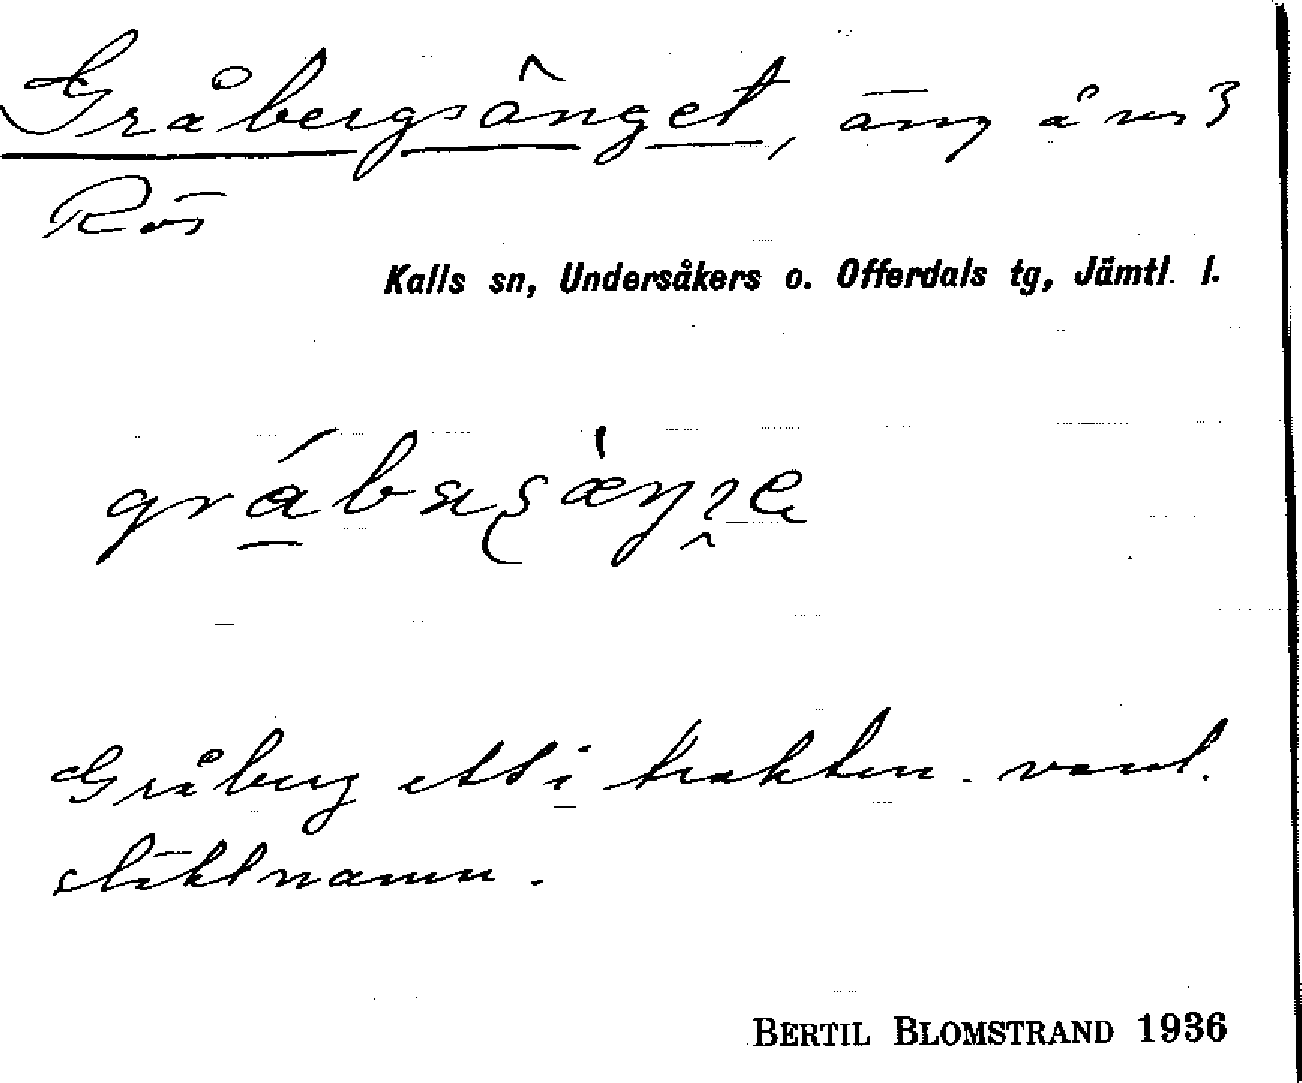 Gråbergsänget, äng å nr 3
Rös
Kalls sn, Undersåkers o. Offerdals tg, Jämtl. l.
Gråberg ett i trakten vanl.
släktnamn.
BERTIL BLOMSTRAND 1936